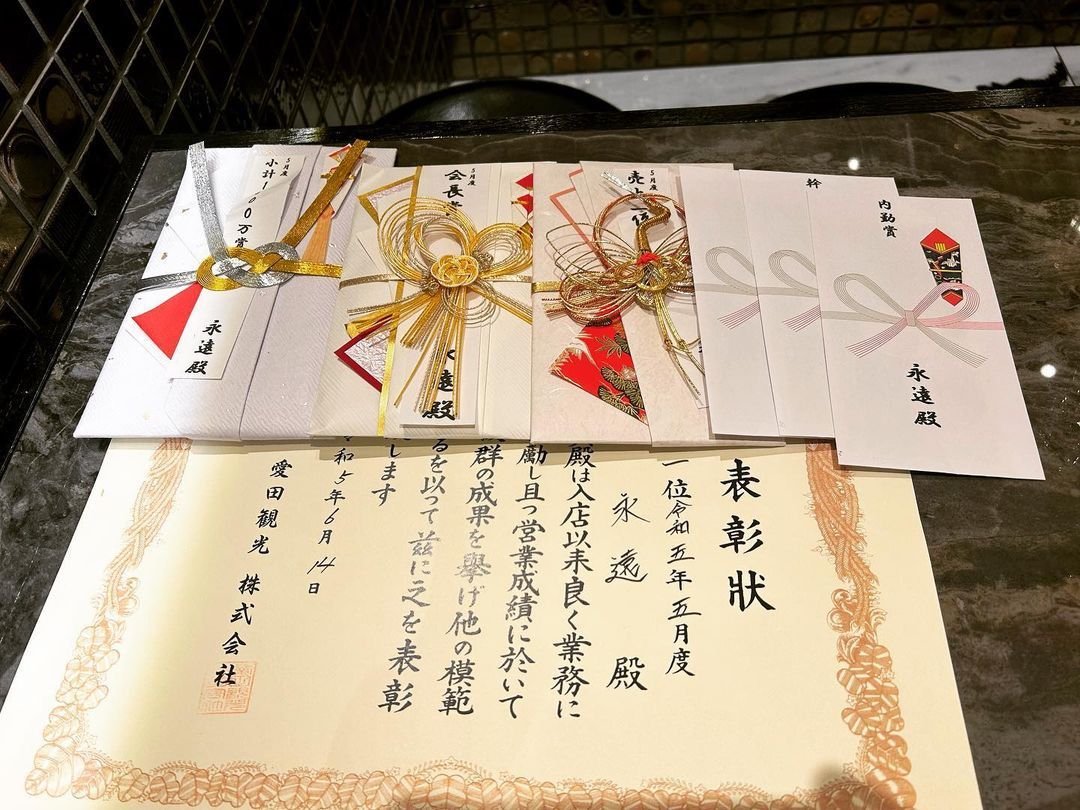 5月度
小計100万賞
永遠殿
5月度
会長賞
永遠殿
5月度
売上
幹
内勤賞
永遠殿
表彰状
一位令和五年五月度
永遠 殿
殿は入店以来良く業務に
励し且つ営業成績に於いて
群の成果を擧げ他の模範
るを以って茲に之を表彰
します
和5年6月14日
愛田観光 株式会社